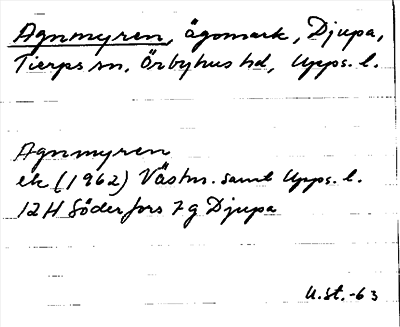 Agnmyren, ägomark, Djupa,
Tierps sn, Örbyhus hd, Upps. l.
Agnmyren
ek (1962) Västm. samt Upps. l.
12H Söderfors 7g Djupa
U.St.-63